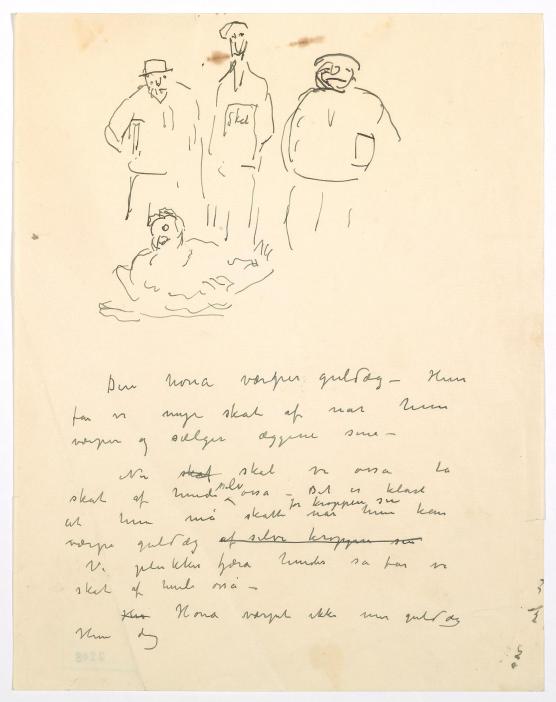 Skat
Den höna værper guldæg – Hun
far vi mye skat af nar hun
værper og sælger æggene sine –
Nu skat skal vi ossa ta
skat af hende selv ossa – Det er klart
at hun må skatte for kroppen sin når hun kan
værpe guldæg af selve kroppen sin
Vi plukker fjæra hendes sa far vi
skat af hende osså –
Höna værpet ikke mer guldæg
Hun døg